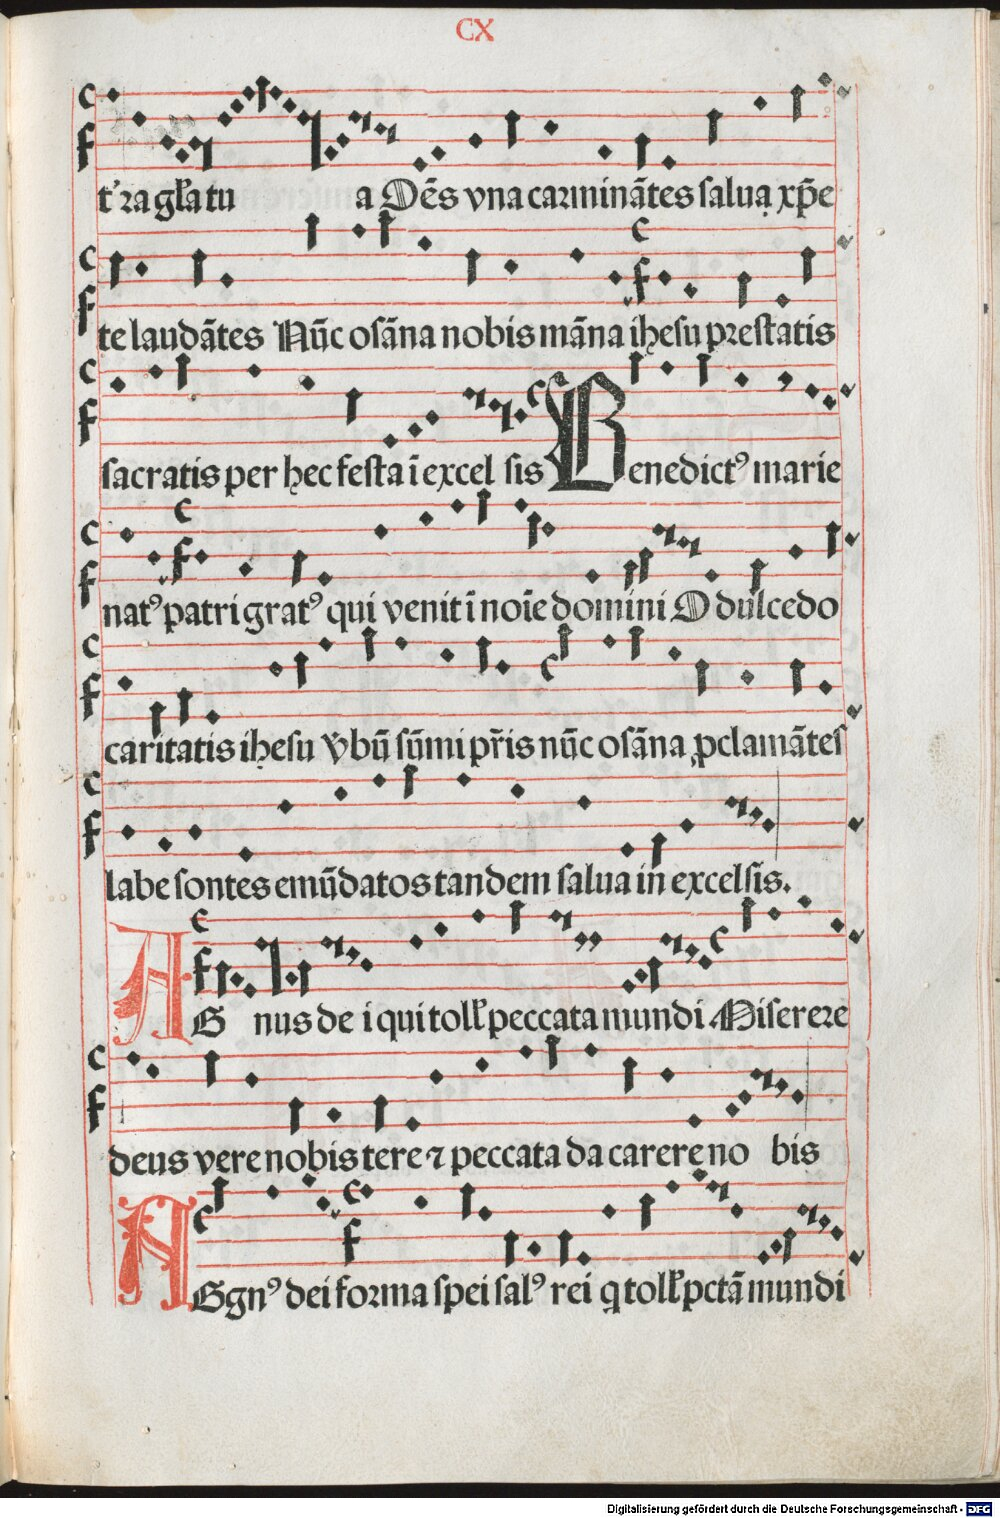 CX
t'ra gl'a tu a Om̄s vna carminātes salua xp̄e
te laudātes Nūc osāna nobis māna ihesu prestatis
sacratis per hec festa ī excel sis Benedictꝰ marie
natꝰ patri gratꝰ qui venit ī noīe domini O dulcedo
caritatis ihesu vbū sūmi pr̄is nūc osāna ꝓclamātes
labe sontes emūdatos tandem salua in excelsis.
AG nus de i qui toll' peccata mundi Miserere
deus vere nobis tere ⁊ peccata da carere no bis
AGgnꝰ dei forma spei salꝰ rei q toll' pctā mundi
Digitalisierung gefördert durch die Deutsche Forschungsgemeinschaft - DFG